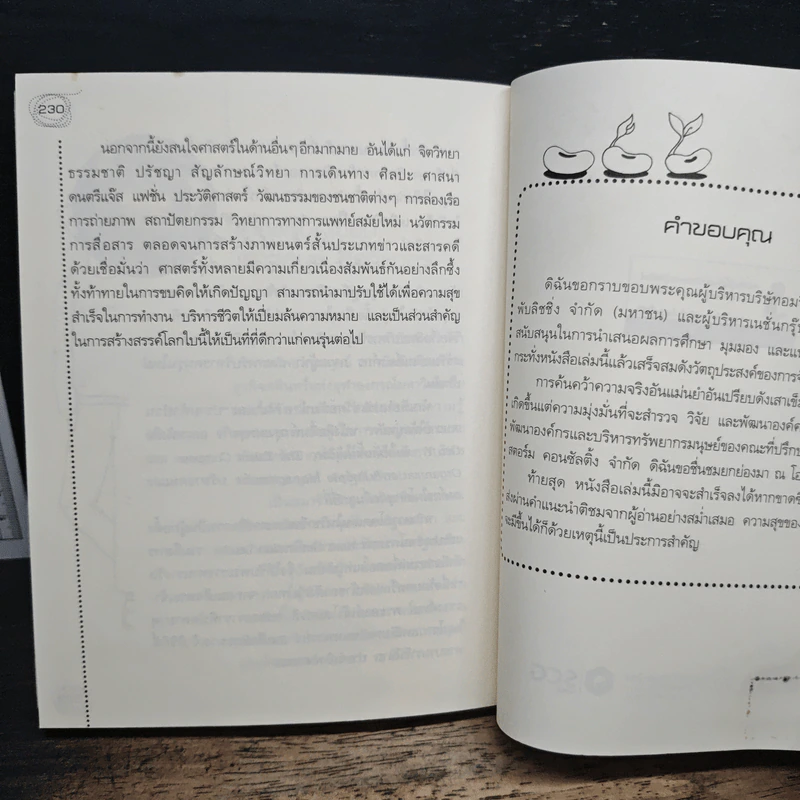 230
นอกจากนี้ยังสนใจศาสตร์ในด้านอื่นๆ อีกมากมาย อันได้แก่ จิตวิทยา
ธรรมชาติ ปรัชญา สัญลักษณ์วิทยา การเดินทาง ศิลปะ ศาสนา
ดนตรีแจ๊ส แฟชั่น ประวัติศาสตร์ วัฒนธรรมของชนชาติต่างๆ การล่องเรือ
การถ่ายภาพ สถาปัตยกรรม วิทยาการทางการแพทย์สมัยใหม่ นวัตกรรม
การสื่อสาร ตลอดจนการสร้างภาพยนตร์สั้นประเภทข่าวและสารคดี
ด้วยเชื่อมั่นว่า ศาสตร์ทั้งหลายมีความเกี่ยวเนื่องสัมพันธ์กันอย่างลึกซึ้ง
ทั้งท้าทายในการขบคิดให้เกิดปัญญา สามารถนำมาปรับใช้ได้เพื่อความสุข
สำเร็จในการทำงาน บริหารชีวิตให้เปี่ยมล้นความหมาย และเป็นส่วนสำคัญ
ในการสร้างสรรค์โลกใบนี้ให้เป็นที่ที่ดีกว่าแก่คนรุ่นต่อไป
คำขอบคุณ
ดิฉันขอกราบขอบพระคุณผู้บริหารบริษัทอมริ
พับลิชชิ่ง จำกัด (มหาชน) และผู้บริหารเนชั่นกรุ๊ป
สนับสนุนในการนำเสนอผลการศึกษา มุมมอง และแ
กระทั่งหนังสือเล่มนี้แล้วเสร็จสมดังวัตถุประสงค์ของการจั
การค้นคว้าความจริงอันแม่นยำอันเปรียบดังเสาเข็ม
เกิดขึ้นแต่ความมุ่งมั่นที่จะสำรวจ วิจัย และพัฒนาองค์ค
พัฒนาองค์กรและบริหารทรัพยากรมนุษย์ของคณะที่ปรึก
สตอร์ม คอนซัลติ้ง จำกัด ดิฉันขอชื่นชมยกย่องมา ณ โอ
ท้ายสุด หนังสือเล่มนี้มิอาจจะสำเร็จลงได้หากขาดซึ่
ส่งผ่านคำแนะนำติชมจากผู้อ่านอย่างสม่ำเสมอ ความสุขของ
จะมีขึ้นได้ก็ด้วยเหตุนี้เป็นประการสำคัญ